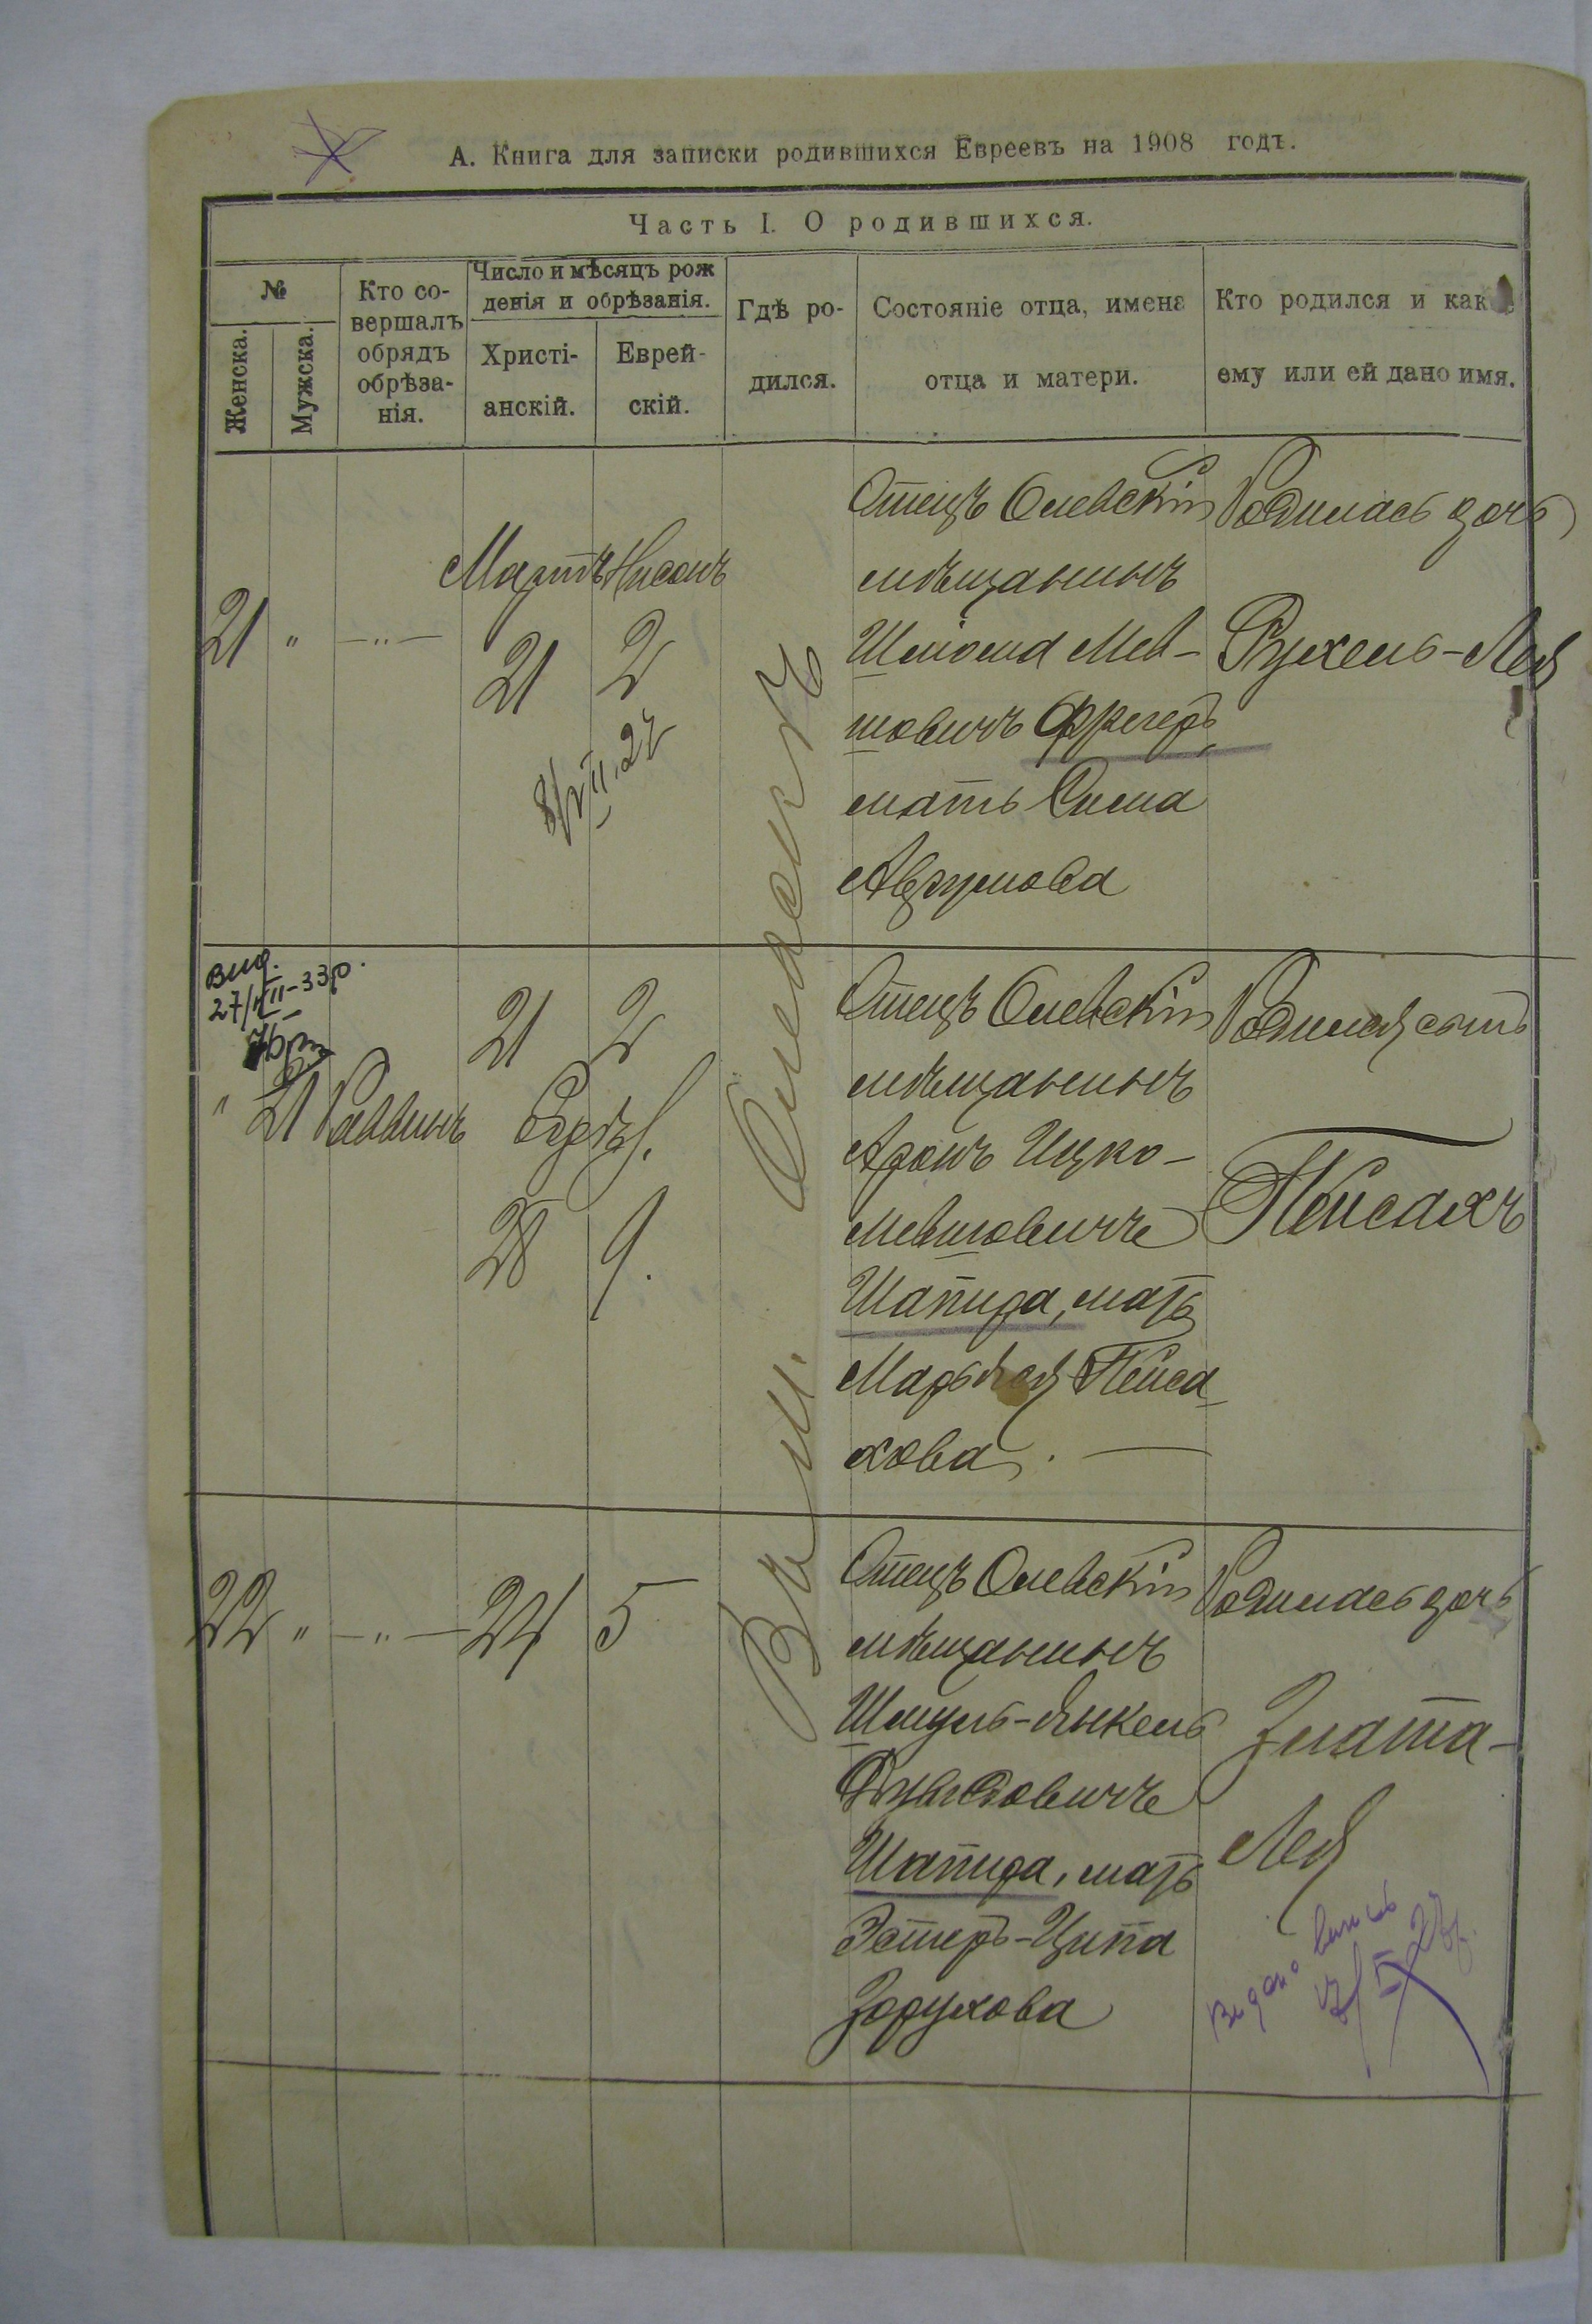 А. Книга для записки родившихся Евреевъ на 1908 годъ.
Часть I. О родившихся.
№
Женска.
Мужска.
Кто со-
вершалъ
обрядъ
обрѣза-
нія.
Число и мѣсяцъ рож
денія и обрѣзанія.
Христі-
анскій.
Еврей-
скій.
Гдѣ ро-
дился.
Состояніе отца, имена
отца и матери.
Кто родился и как
ему или ей дано имя.
21 " —"—
Мартъ Нисонъ
21 2
Въ м. Олевскѣ
Отецъ Олевскій
мѣщанинъ
Шліома Мев-
шовичъ Фрегеръ,
мать Сима
Аврумова
Родилась дочь
Рухель-Лея
Вид.
27/VII-33р.
" 21 Раввинъ
21 2
Обрѣз.
28 9.
Отецъ Олевскій
мѣщанинъ
Аронъ Ицко-
Мевшовичъ
Шапира, мать
Марьяся Пейса-
хова. —
Родился сынъ
Пейсахъ
22 " —"— 24 5
Отецъ Олевскій
мѣщанинъ
Шмуль-Янкель
Шапира, мать
Эстеръ-Ципа
Зорухова
Родилась дочь
Злата-
Лея